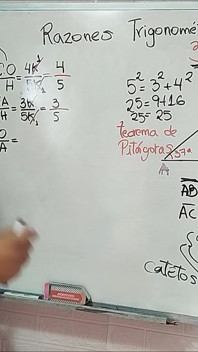 Razones Trigonomé
CO/H = 4K/5K = 4/5
A/H = 3K/5K = 3/5
O/A =
5² = 3² + 4²
25 = 9+16
25 = 25
teorema de
Pitágoras
37°
A
AB
AC
catetos